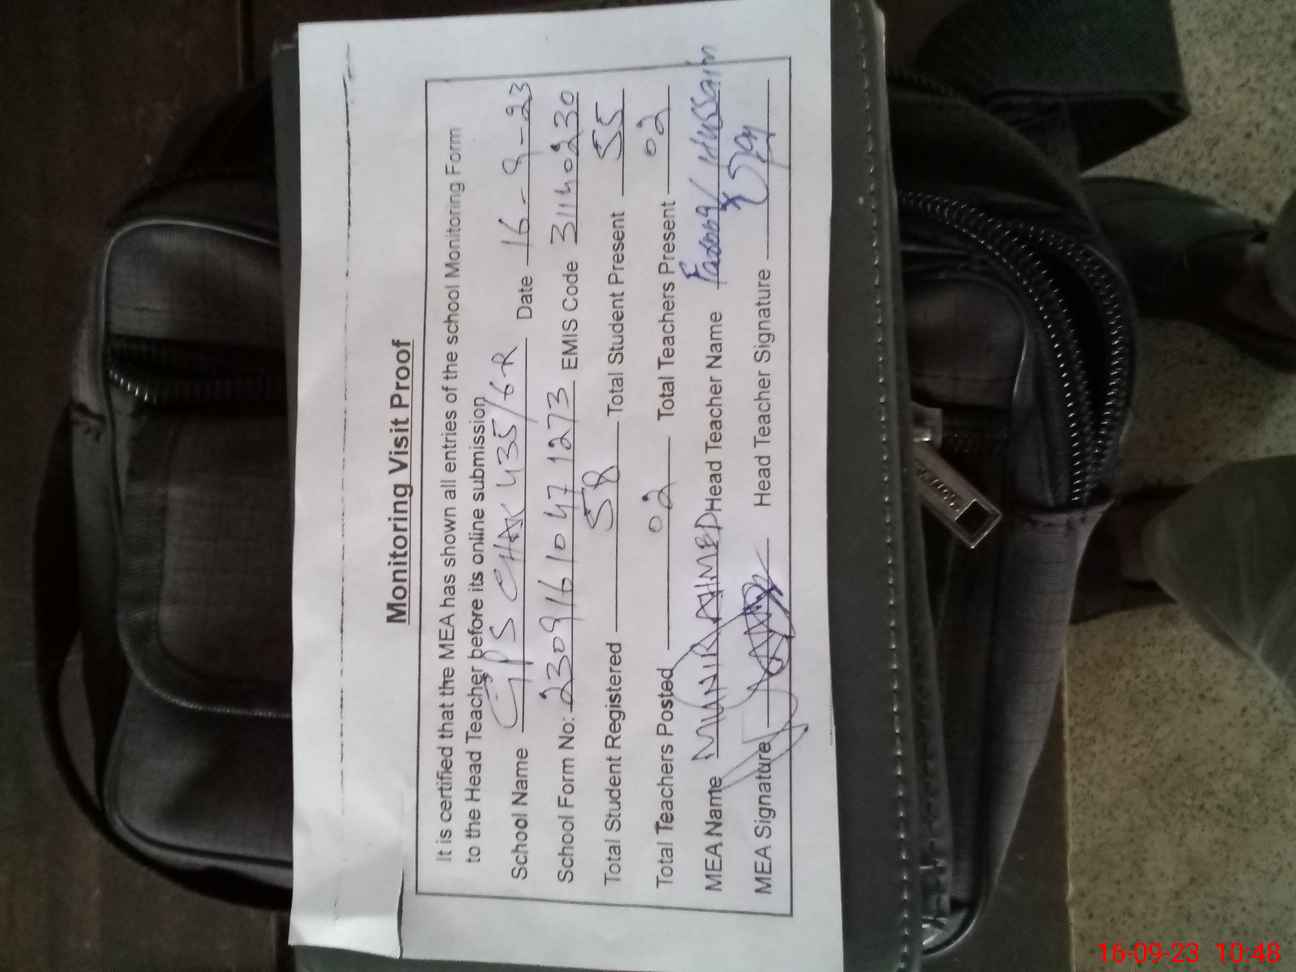 Monitoring Visit Proof
It is certified that the MEA has shown all entries of the school Monitoring Form
to the Head Teacher before its online submission
School Name GPS CHAK 435/6-R Date 16-9-23
School Form No: 2309161047 1273 EMIS Code 31140230
Total Student Registered 58 Total Student Present 55
Total Teachers Posted 02 Total Teachers Present 02
MEA Name MUNIR AHMED Head Teacher Name Farooq Hussain
MEA Signature Head Teacher Signature
16-09-23 10:48